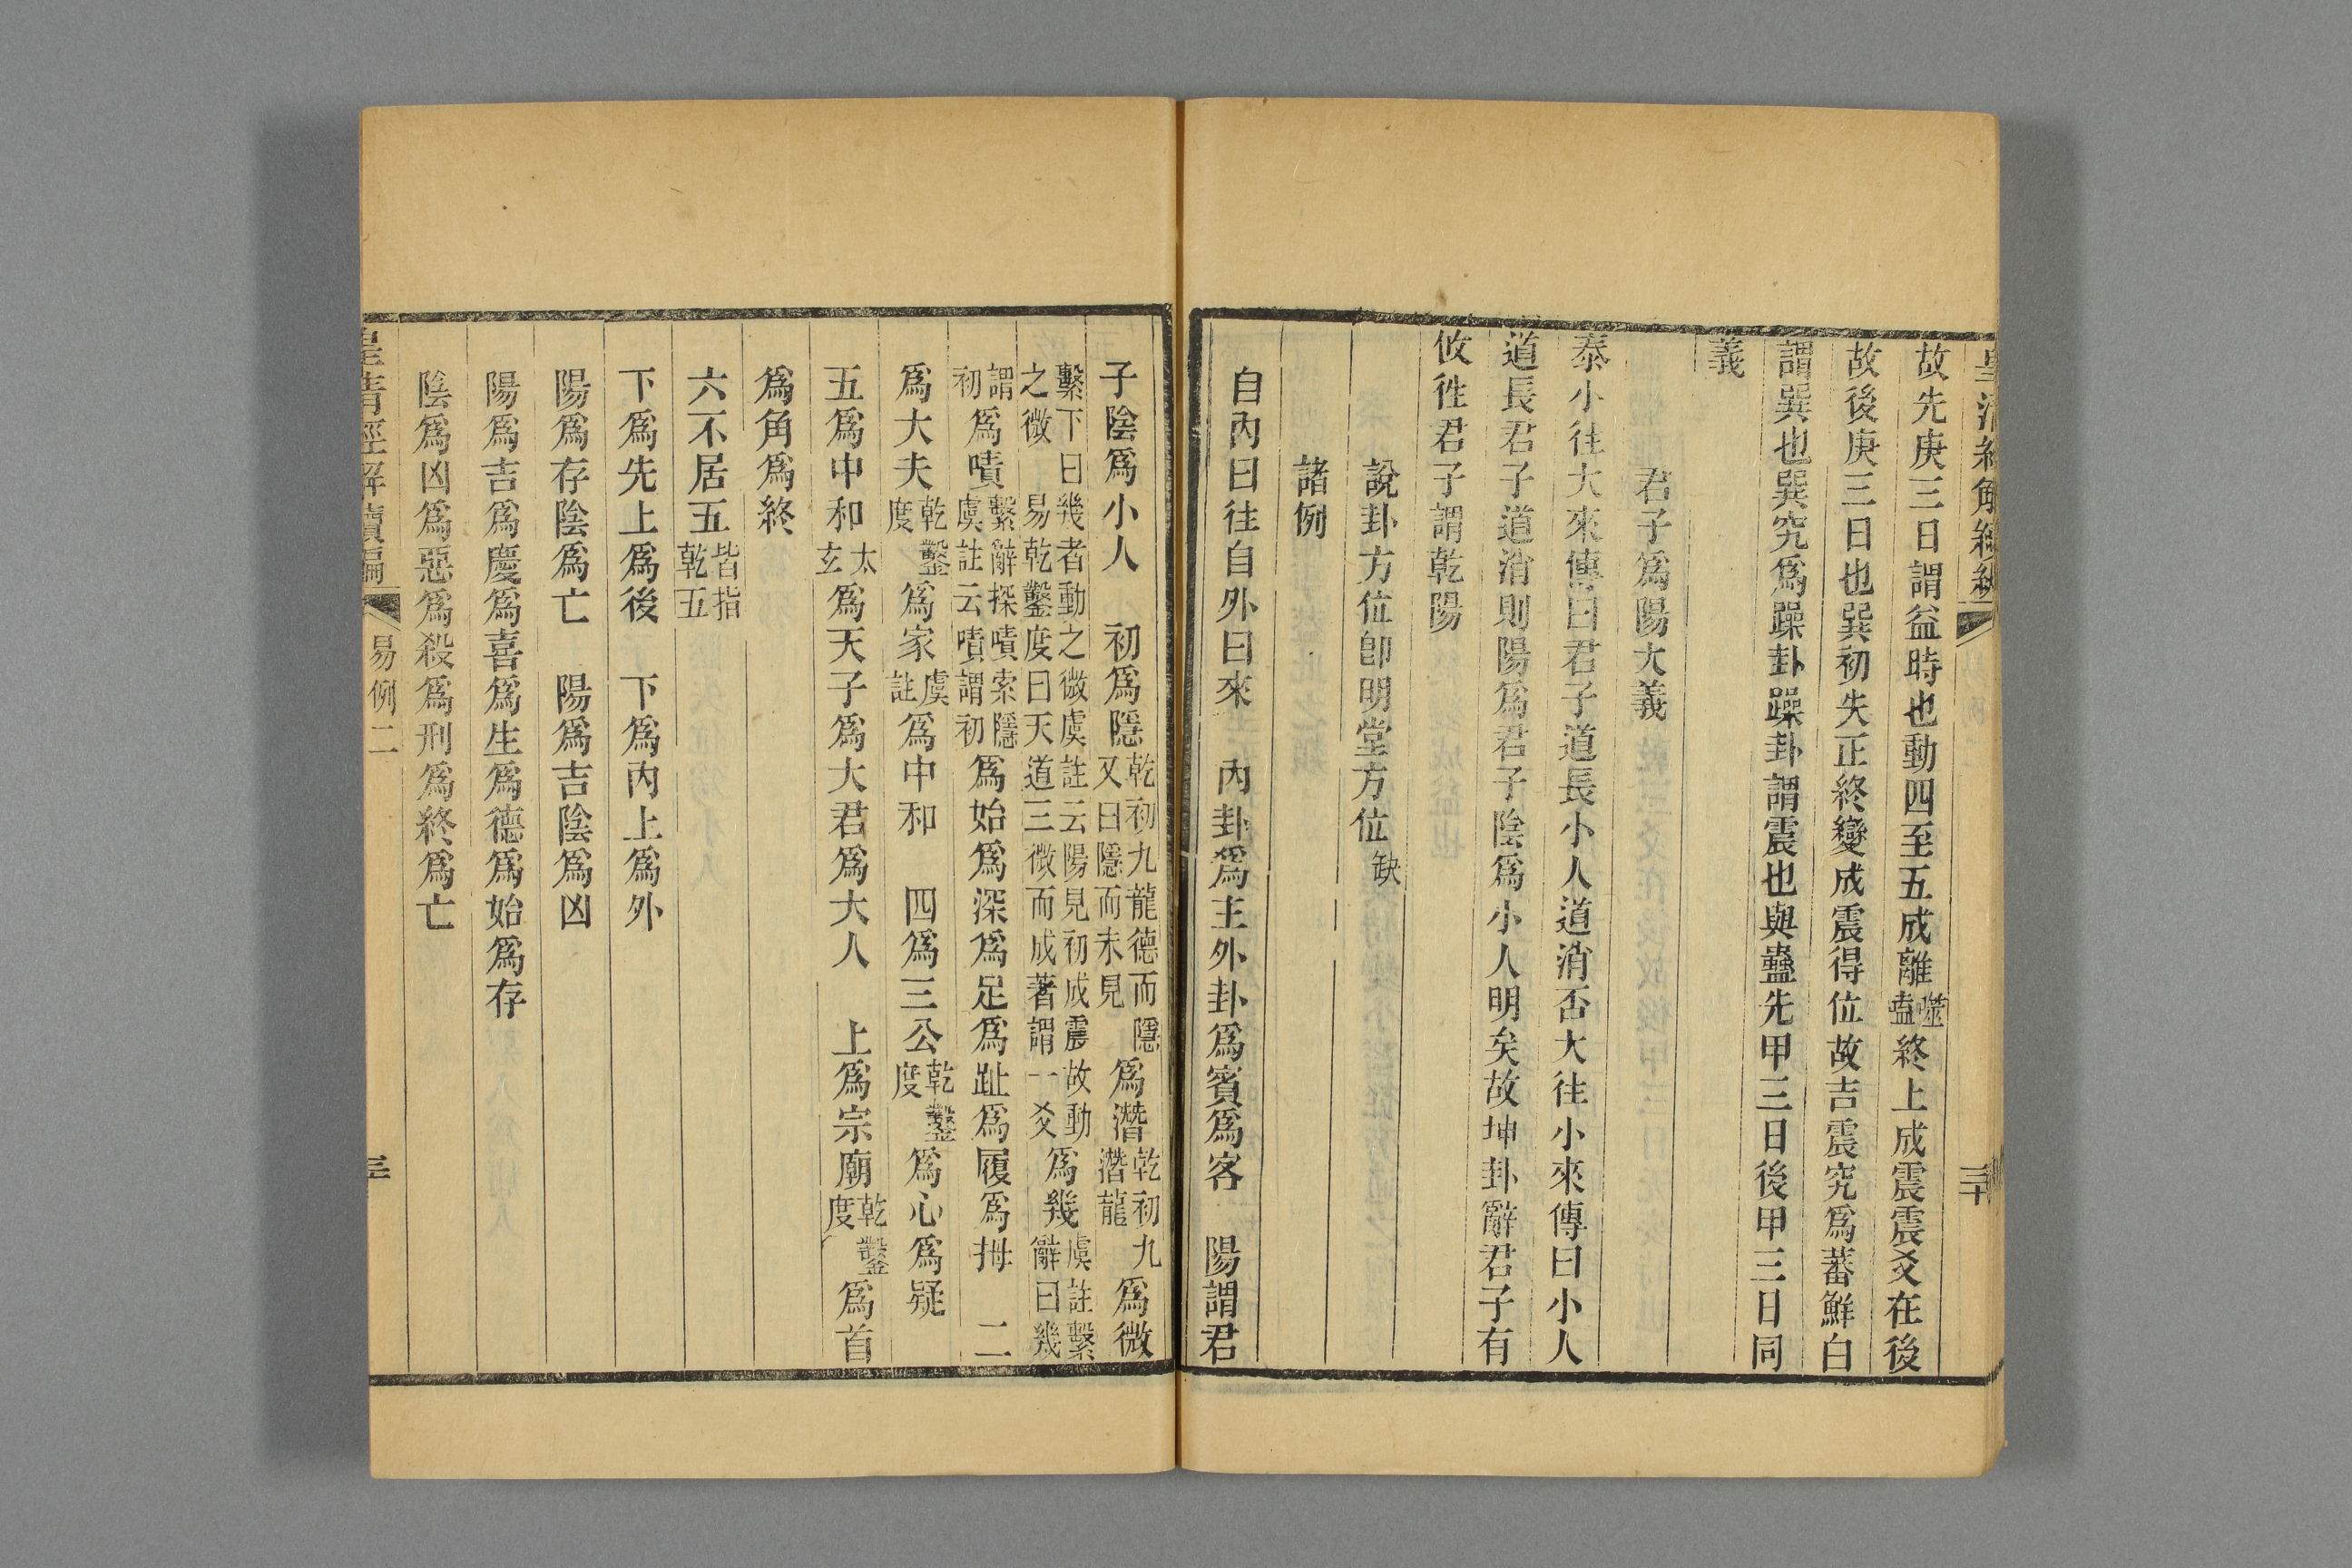 皇清經解續編
三十
故先庚三日謂益時也動四至五成離噬嗑終上成震震爻在後
故後庚三日也巽初失正終變成震得位故吉震究爲蕃鮮白
謂巽也巽究爲躁卦躁卦謂震也與蠱先甲三日後甲三日同
義
君子爲陽大義
泰小往大來傳曰君子道長小人道消否大往小來傳曰小人
道長君子道消則陽爲君子陰爲小人明矣故坤卦辭君子有
攸往君子謂乾陽
說卦方位卽明堂方位缺
諸例
自內曰往自外曰來　內卦爲主外卦爲賓爲客　陽謂君
子陰爲小人　初爲隱乾初九龍德而隱又曰隱而未見爲潛乾初九潛龍爲微
繫下曰幾者動之微虞註云陽見初成震故動之微　易乾鑿度曰天道三微而成著謂一爻爲幾虞註繫辭曰幾
謂初爲嘖繫辭探嘖索隱虞註云嘖謂初爲始爲深爲足爲趾爲履爲拇　二
爲大夫乾鑿度爲家虞註爲中和　四爲三公乾鑿度爲心爲疑
五爲中和太玄爲天子爲大君爲大人　上爲宗廟乾鑿度爲首
爲角爲終
六不居五皆指乾五
下爲先上爲後　下爲內上爲外
陽爲存陰爲亡　陽爲吉陰爲凶
陽爲吉爲慶爲喜爲生爲德爲始爲存
陰爲凶爲惡爲殺爲刑爲終爲亡
皇清經解續編
易例二